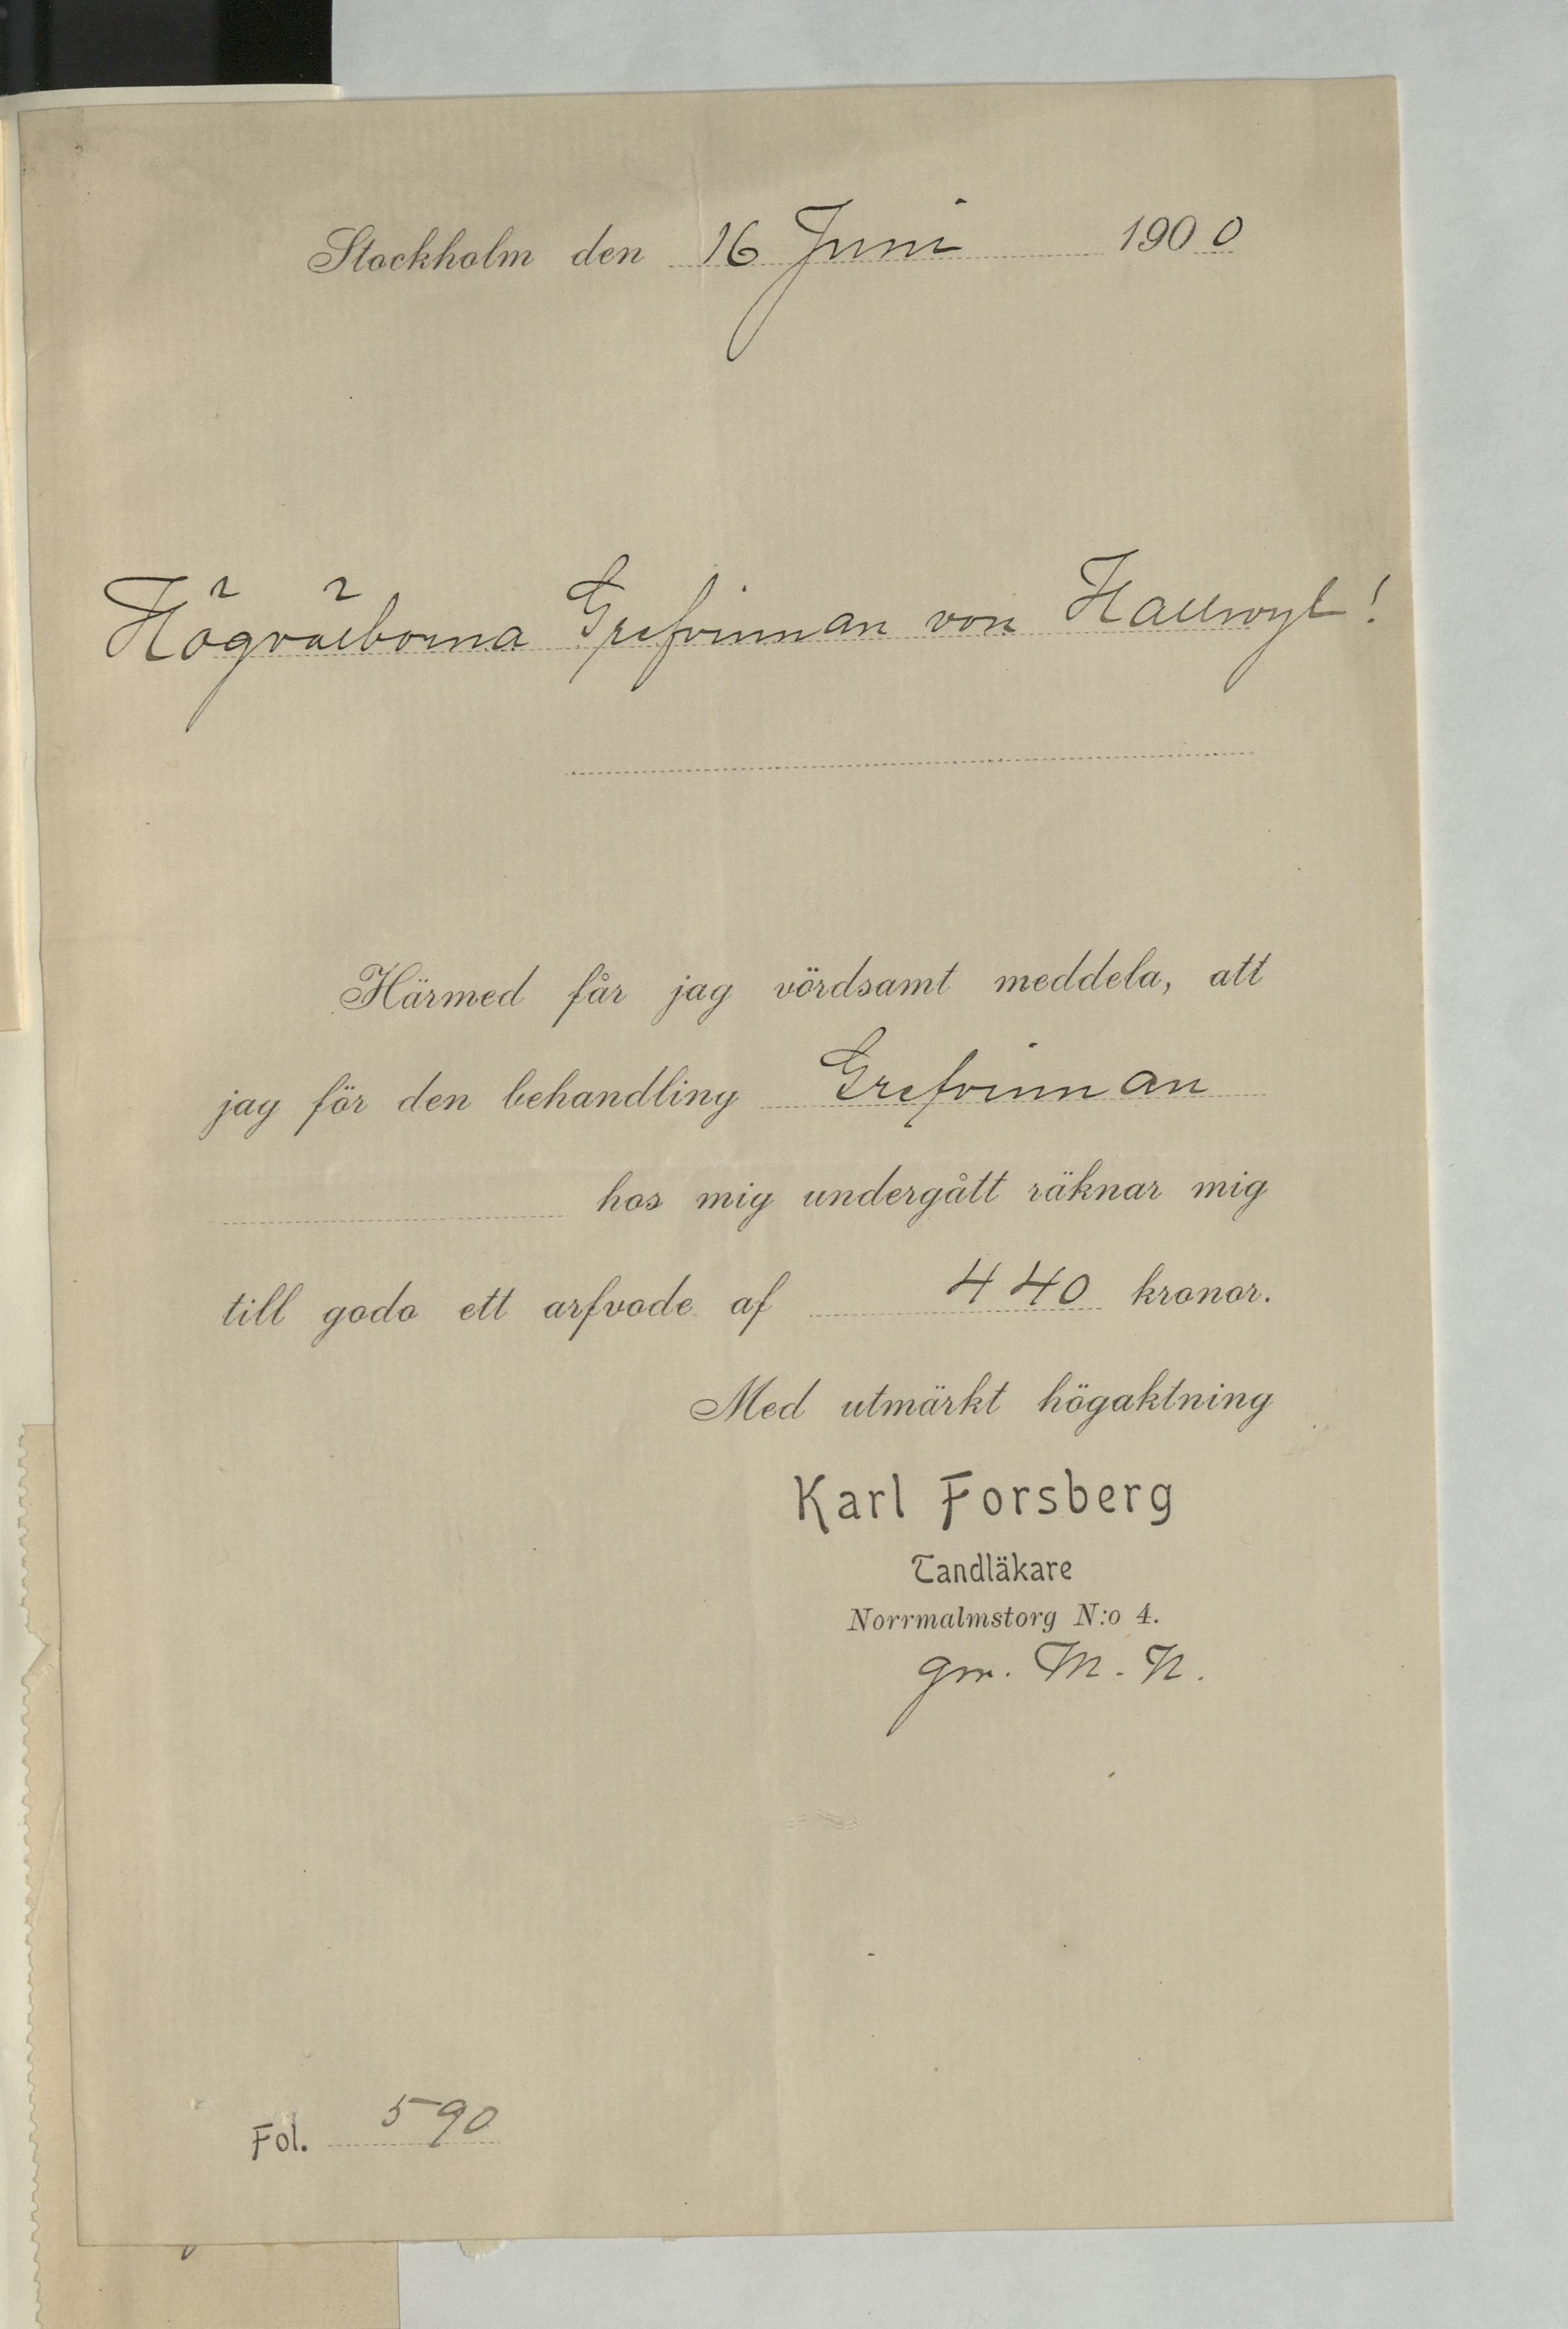 Stockholm den 16 Juni 1900
Högvälborna Grefvinnan von Hallwyl!
Härmed får jag vördsamt meddela, att
jag för den behandling Grefvinnan
hos mig undergått räknar mig
till godo ett arfvode af 440 kronor.
Med utmärkt högaktning
Karl Forsberg
Tandläkare
Norrmalmstorg N:o 4.
gm. M. N.
Fol. 590